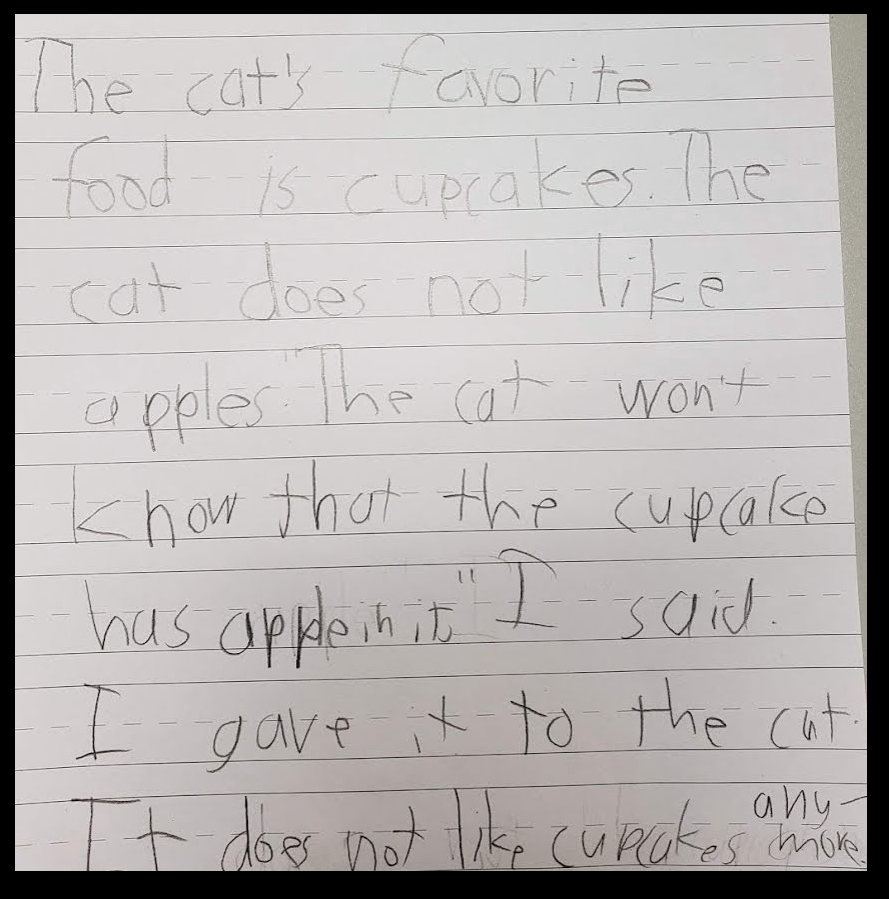 The cat's favorite
food is cupcakes. The
cat does not like
apples. "The cat won't
know that the cupcake
has apple in it," I said.
I gave it to the cat.
It does not like cupcakes any-
more.